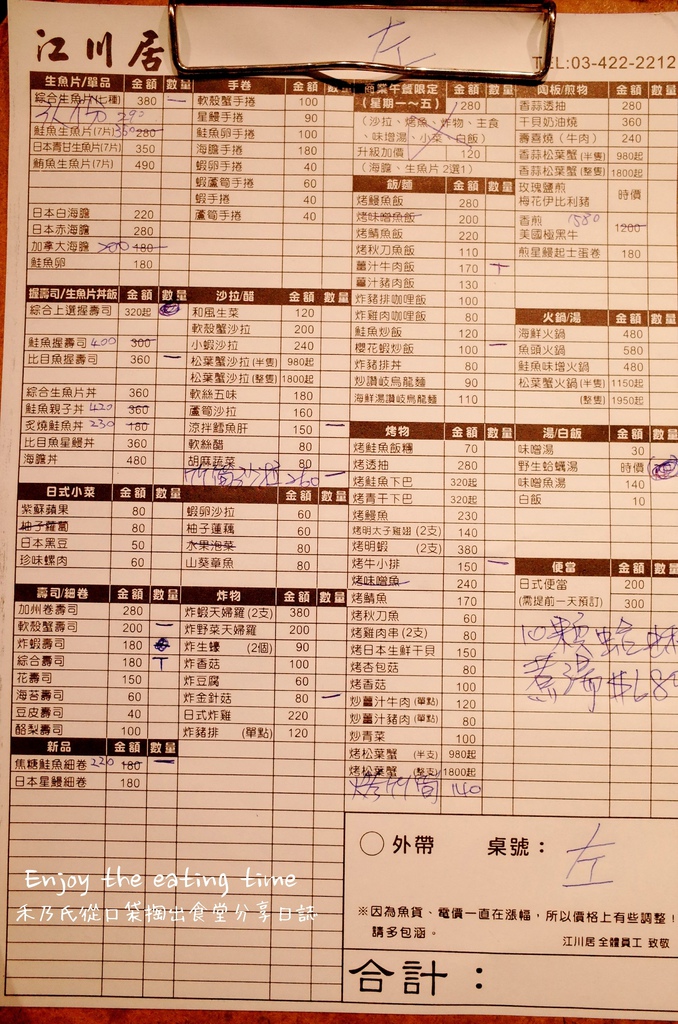 江川居
左
TEL:03-422-2212
生魚片/單品 金額 數量
綜合生魚片(七種) 380 一
290
鮭魚生魚片(7片) 360 280
日本青甘生魚片(7片) 350
鮪魚生魚片(7片) 490
日本白海膽 220
日本赤海膽 280
加拿大海膽 200 180
鮭魚卵 180
手卷 金額 數量
軟殼蟹手捲 100
星鰻手捲 90
鮭魚卵手捲 100
海膽手捲 180
蝦卵手捲 40
蝦蘆筍手捲 60
蝦手捲 40
蘆筍手捲 40
商業午餐限定 金額 數量
(星期一~五) 280
(沙拉、烤魚、炸物、主食
、味噌湯、小菜、白飯)
升級加價 120
(海膽、生魚片 2選1)
飯/麵 金額 數量
烤鰻魚飯 280
烤味噌魚飯 200
烤鯖魚飯 220
烤秋刀魚飯 110
薑汁牛肉飯 170 T
薑汁豬肉飯 130
炸豬排咖哩飯 100
炸雞肉咖哩飯 80
鮭魚炒飯 120
櫻花蝦炒飯 100 一
炸豬排丼 80
炒讚岐烏龍麵 90
海鮮湯讚岐烏龍麵 110
陶板/煎物 金額 數量
香蒜透抽 280
干貝奶油燒 360
壽喜燒(牛肉) 240
香蒜松葉蟹(半隻) 980起
香蒜松葉蟹(整隻) 1800起
玫瑰鹽煎
梅花伊比利豬 時價
香煎 1580
美國極黑牛 1200
煎星鰻起士蛋卷 180
火鍋/湯 金額 數量
海鮮火鍋 480
魚頭火鍋 580
鮭魚味噌火鍋 480
松葉蟹火鍋(半隻) 1150起
(整隻) 1950起
握壽司/生魚片丼飯 金額 數量
綜合上選握壽司 320起
鮭魚握壽司 400 300
比目魚握壽司 360 一
綜合生魚片丼 360
鮭魚親子丼 420 360
炙燒鮭魚丼 230 180
比目魚星鰻丼 360
海膽丼 480
沙拉/醋 金額 數量
和風生菜 120
軟殼蟹沙拉 200
小蝦沙拉 240
松葉蟹沙拉(半隻) 980起
松葉蟹沙拉(整隻) 1800起
軟絲五味 180
蘆筍沙拉 160
涼拌鱈魚肝 150 一
軟絲醋 80
胡麻蔬菜 80
竹筍沙拉 260 一
烤物 金額 數量
烤鮭魚飯糰 70
烤透抽 280
烤鮭魚下巴 320起
烤青干下巴 320起
烤鰻魚 230
烤明太子雞翅(2支) 140
烤明蝦 (2支) 380
烤牛小排 150 一
烤味噌魚 240
烤鯖魚 170
烤秋刀魚 60
烤雞肉串(2支) 80
烤日本生鮮干貝 150
烤杏包菇 80
烤香菇 100
炒薑汁牛肉(單點) 120
炒薑汁豬肉(單點) 80
炒青菜 100
烤松葉蟹 (半支) 980起
烤松葉蟹 (整支) 1800起
烤竹筍 140
湯/白飯 金額 數量
味噌湯 30
野生蛤蠣湯 時價
味噌魚湯 140
白飯 10
便當 金額 數量
日式便當 200
(需提前一天預訂) 300
10顆蛤
煮湯$180
日式小菜 金額 數量
紫蘇蘋果 80
柚子蘿蔔 80
日本黑豆 50
珍味螺肉 60
金額 數量
蝦卵沙拉 60
柚子蓮藕 60
水果泡菜 80
山葵章魚 80
壽司/細卷 金額 數量
加州卷壽司 280
軟殼蟹壽司 200 一
炸蝦壽司 180
綜合壽司 180 T
花壽司 150
海苔壽司 60
豆皮壽司 40
酪梨壽司 100
炸物 金額 數量
炸蝦天婦羅(2支) 380
炸野菜天婦羅 200
炸生蠔 (2個) 90
炸香菇 100
炸豆腐 60
炸金針菇 80 一
日式炸雞 220
炸豬排 (單點) 120
新品 金額 數量
焦糖鮭魚細卷 220 180 一
日本星鰻細卷 180
外帶 桌號： 左
※因為魚貨、電價一直在漲幅，所以價格上有些調整！
請多包涵。
江川居 全體員工 致敬
合計：
Enjoy the eating time
禾乃氏從口袋掏出食堂分享日誌